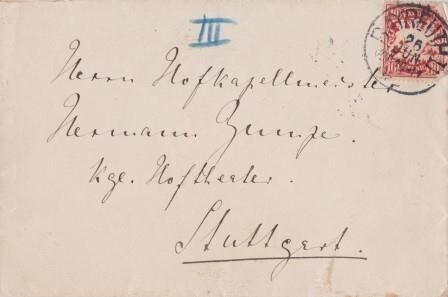 III
26
Herrn Hofkapellmeister
Hermann Zumpe.
kgl. Hoftheater.
Stuttgart.